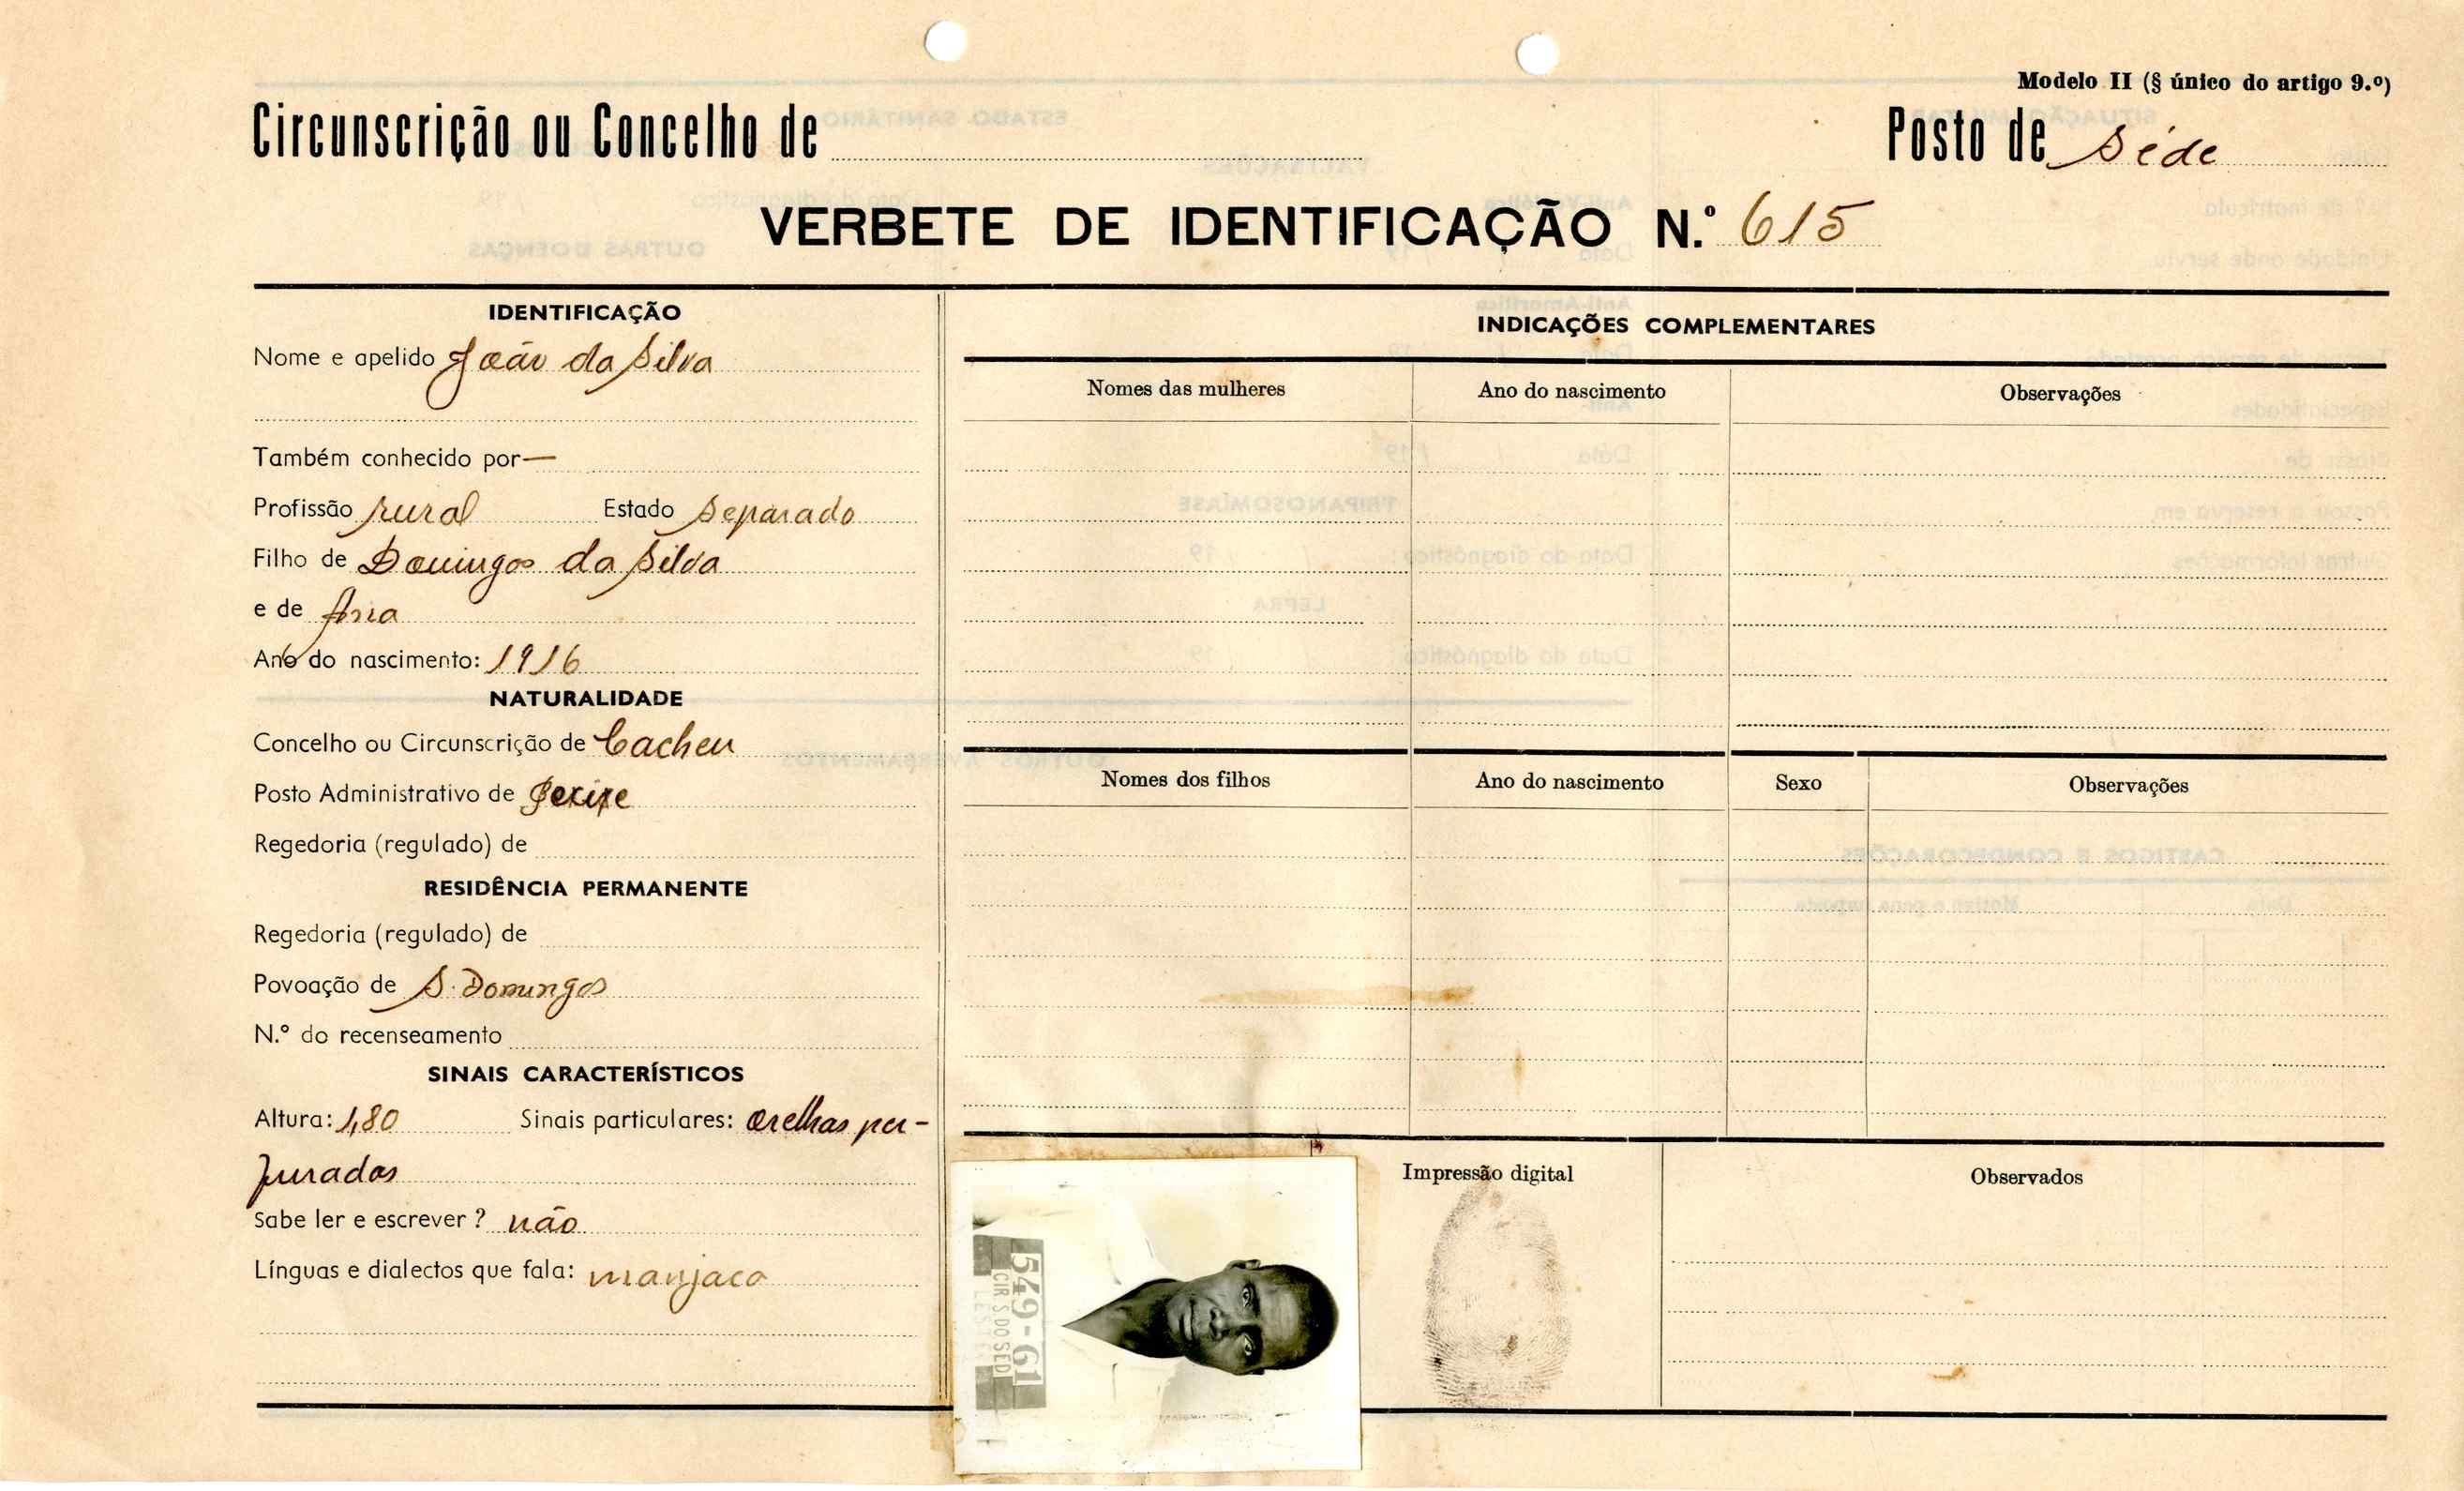 Modelo II (§ único do artigo 9.º)
Circunscrição ou Concelho de
Posto de Séde
VERBETE DE IDENTIFICAÇÃO N.º 615
IDENTIFICAÇÃO
Nome e apelido João da Silva
Também conhecido por —
Profissão rural Estado Separado
Filho de Domingos da Silva
e de Ana
Ano do nascimento: 1916
NATURALIDADE
Concelho ou Circunscrição de Cacheu
Posto Administrativo de
Regedoria (regulado) de
RESIDÊNCIA PERMANENTE
Regedoria (regulado) de
Povoação de S. Domingos
N.º do recenseamento
SINAIS CARACTERÍSTICOS
Altura: 1,80 Sinais particulares: orelhas per-
furadas
Sabe ler e escrever ? não
Línguas e dialectos que fala: manjaco
INDICAÇÕES COMPLEMENTARES
Nomes das mulheres Ano do nascimento Observações
Nomes dos filhos Ano do nascimento Sexo Observações
549-61
CIR S DO SED
Impressão digital
Observados